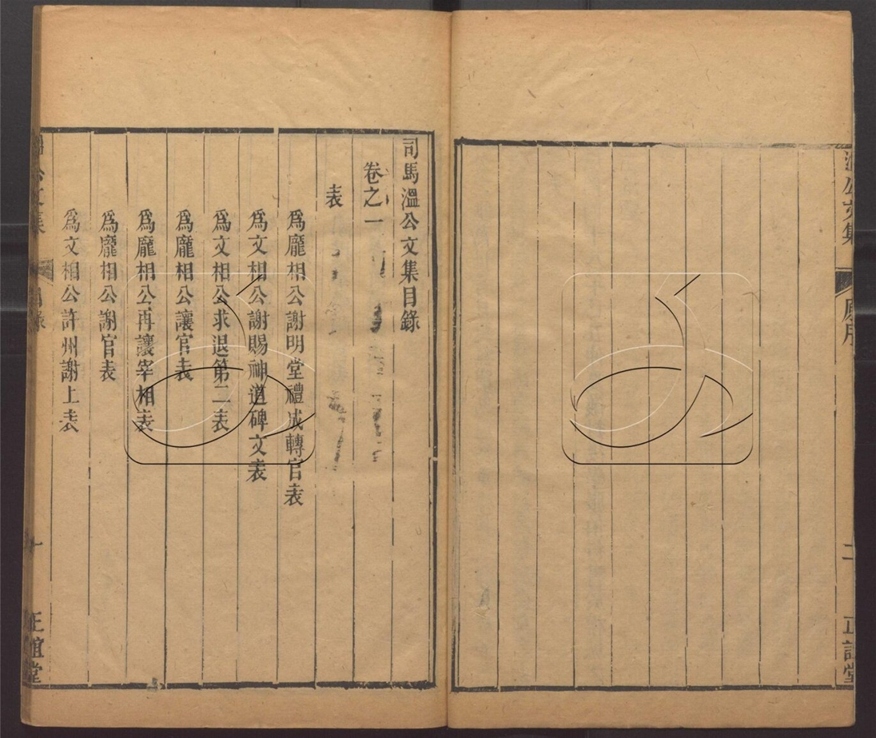 溫公文集
原序
二
正誼堂
司馬溫公文集目錄
卷之一
表
爲龐相公謝明堂禮成轉官表
爲文相公謝賜神道碑文表
爲文相公求退第二表
爲龐相公讓官表
爲龐相公再讓宰相表
爲龐相公謝官表
爲文相公許州謝上表
溫公文集
目錄
一
正誼堂